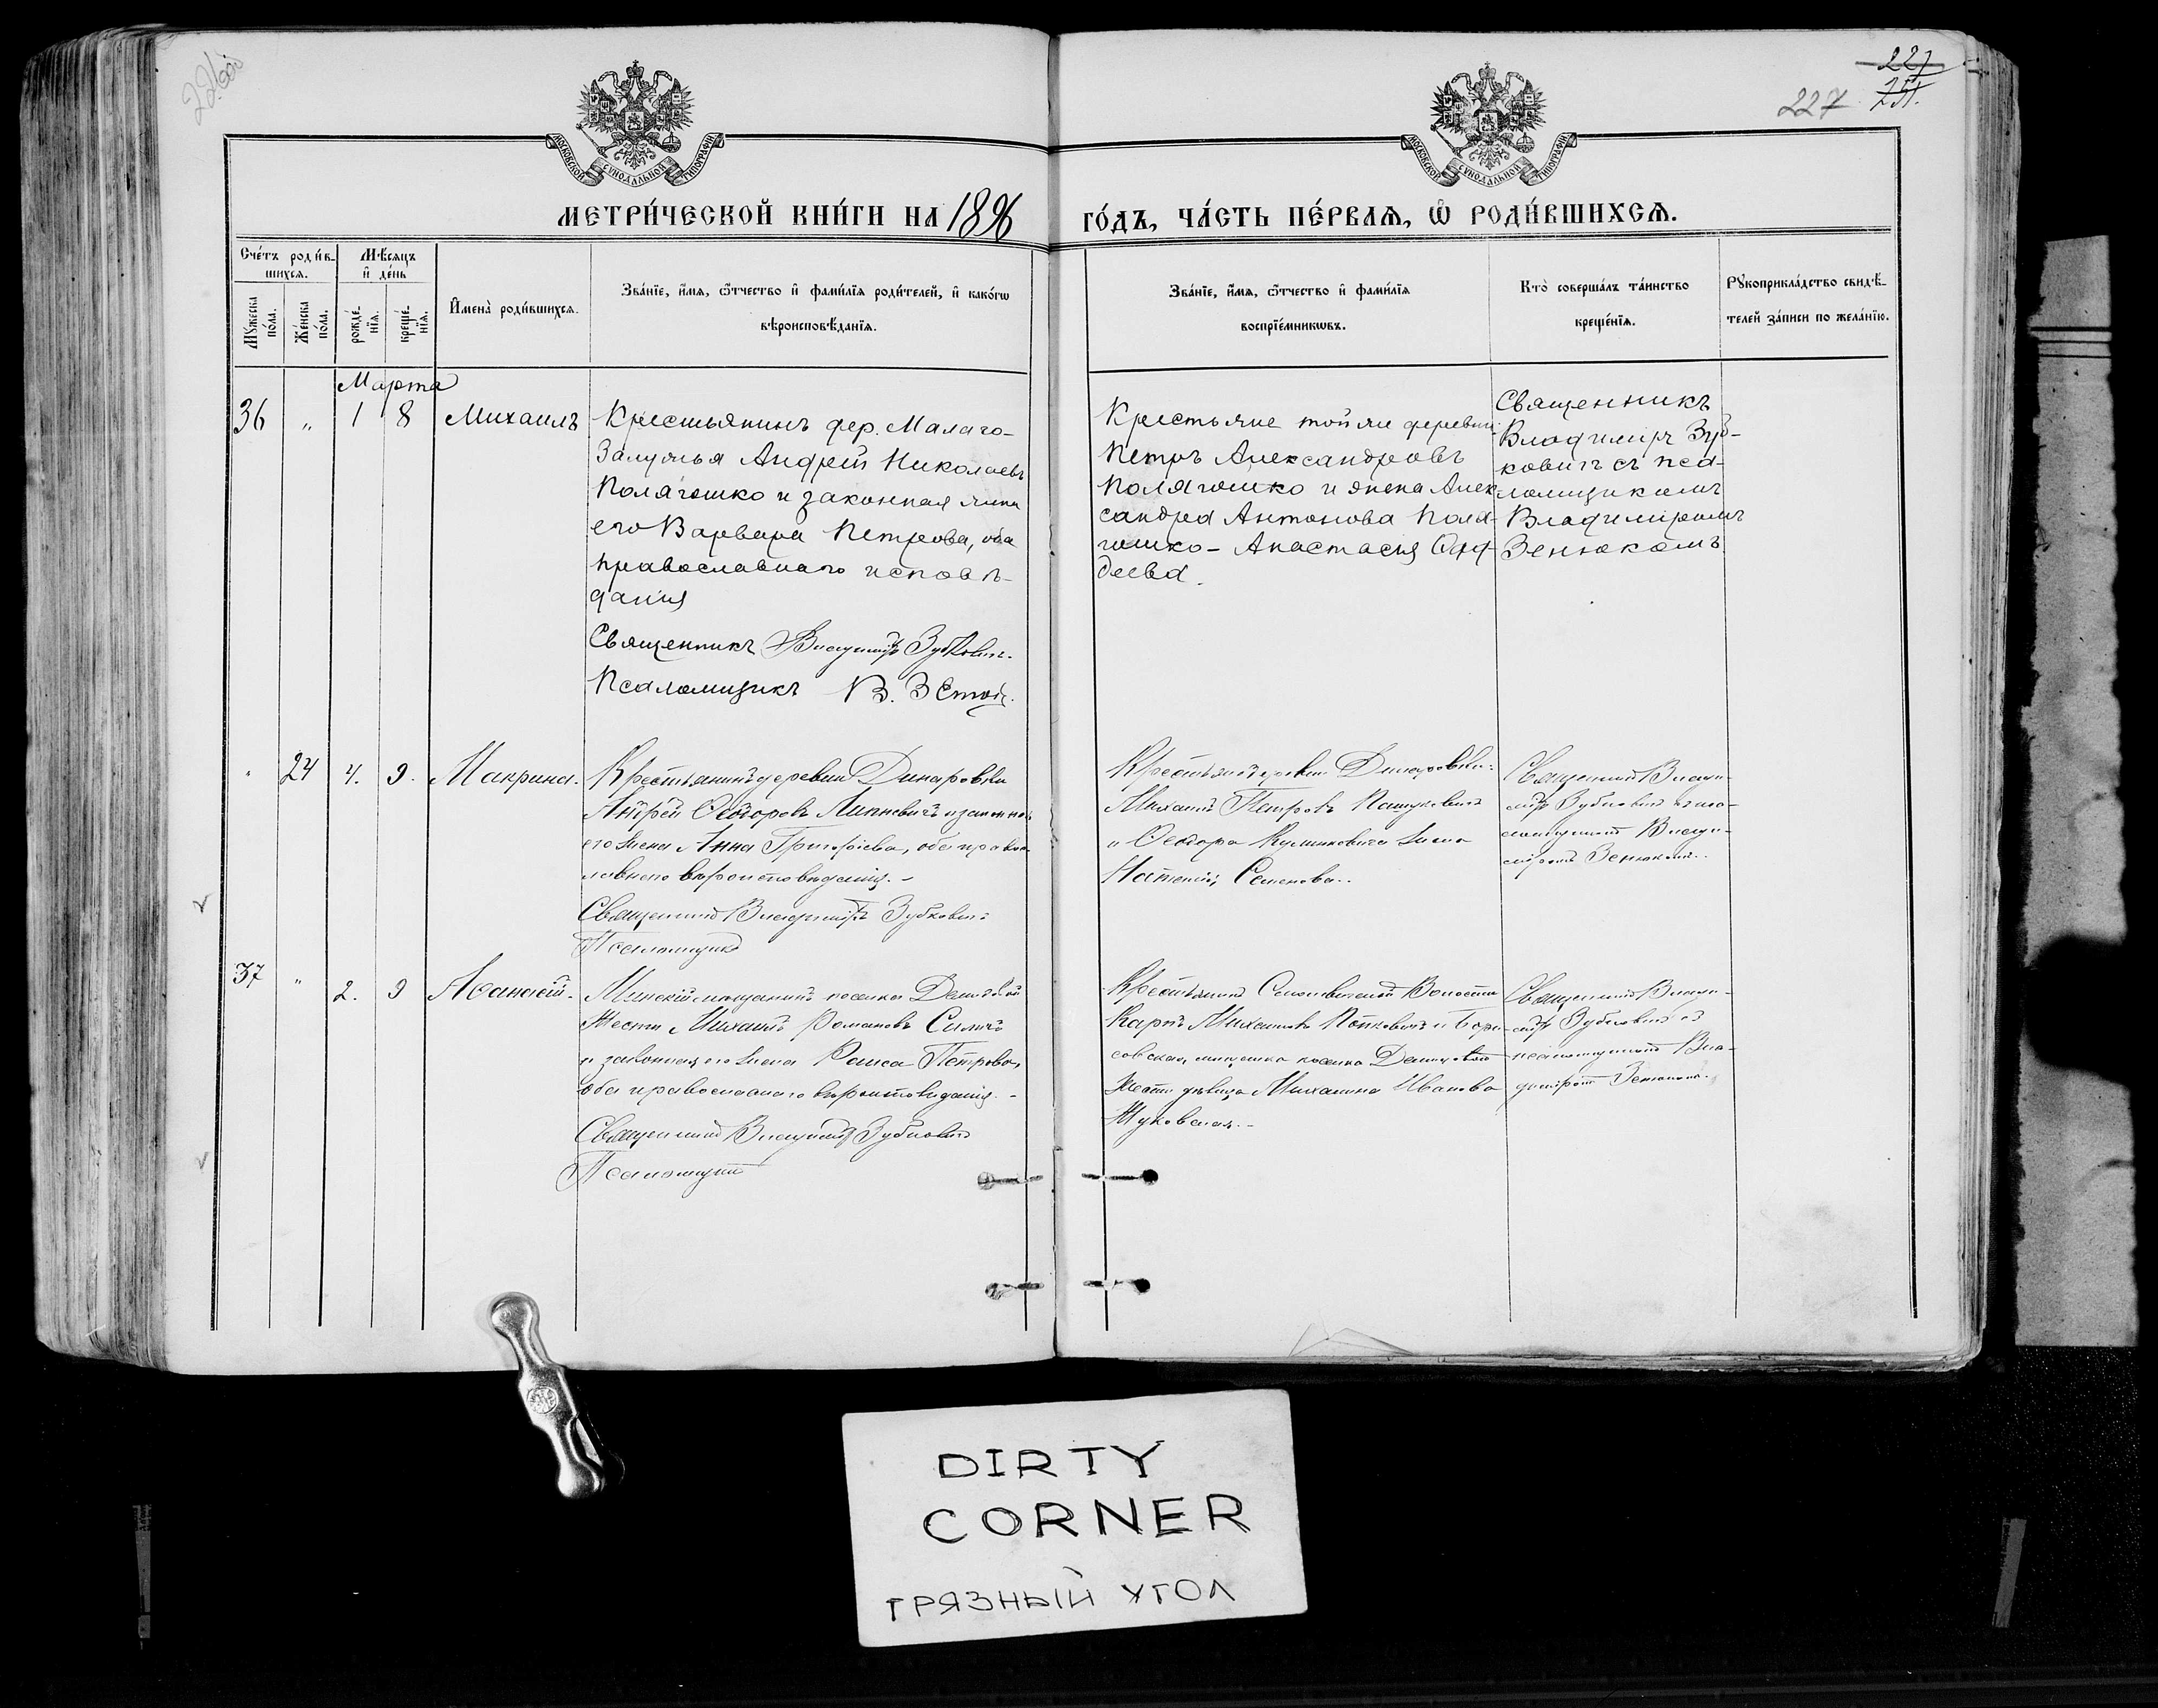 226об
227
251.
227
МОСКОВСКОЙ СУНОДАЛЬНОЙ ТИПОГРАФІИ
МОСКОВСКОЙ СУНОДАЛЬНОЙ ТИПОГРАФІИ
МЕТРИ́ЧЕСКОЙ КНИ́ГИ НА 1896
ГО́ДЪ, ЧА́СТЬ ПЕ́РВАѦ, Ѡ РОДИ́ВШИХСѦ.
Сче́тъ роди́в-
шихсѧ.
Мꙋ́жеска по́ла.
Же́нска по́ла.
Мѣ́сяцъ
и҆ де́нь
рожде́-
нїѧ.
креще́-
нїѧ.
И҆мена̀ роди́вшихсѧ.
Зва́нїе, и҆́мѧ, ѻ҆́тчество и҆ фами́лїѧ роди́телей, и҆ како́гѡ
вѣроисповѣ́данїѧ.
Зва́нїе, и҆́мѧ, ѻ҆́тчество и҆ фами́лїѧ
воспрїе́мникѡвъ.
Кто̀ соверша́лъ та́инство
креще́нїѧ.
Рꙋкоприкла́дство свидѣ́-
телей за́писи по жела́нїю.
Марта
36 „ 1 8 Михаилъ
Крестьянинъ дер. Малаго-
Залужья Андрей Николаевъ
Полягошко и законная жена
его Варвара Петрова, оба
православнаго исповѣ-
данія
Священникъ Владиміръ Зубковичъ.
Псаломщикъ В. Зенюк.
Крестьяне той же деревни
Петръ Александровъ
Полягошко и жена Алек
сандра Антонова Поля-
гошко - Анастасія Фад-
деева.
Священникъ
Владиміръ Зуб-
ковичъ съ пса-
ломщикомъ
Владиміромъ
Зенюкомъ
„ 24 4. 9. Макрина.
Крестьянинъ деревни Динаровки
Андрей Ѳеодоровъ Липневичъ и законная
его жена Анна Григорьева, оба правос
лавнаго вѣроисповѣданія.-
Священникъ Владиміръ Зубковичъ
Псаломщикъ
Крестьяне деревни Динаровки:
Михаилъ Петровъ
и Ѳеодора жена
Наталія Семенова..
Священникъ Влади-
міръ Зубковичъ съ пса-
ломщикомъ Влади-
міромъ Зенюкомъ..
37 „ 2. 9 Аѳанасій.
Минскій мѣщанинъ поселка
Михаилъ Романовъ
и законная его жена Раиса Петрова,
оба православнаго вѣроисповѣданія.-
Священникъ Владиміръ Зубковичъ
Псаломщикъ
Крестьянинъ Волости
Карпъ Михаиловъ Попковичъ и Бори-
совская мѣщанка поселка
дѣвица Михалина Иванова
Жуковская.-
Священникъ Влади-
міръ Зубковичъ съ
псаломщикомъ Вла-
диміромъ Зенюкомъ.
DIRTY
CORNER
ГРЯЗНЫЙ УГОЛ